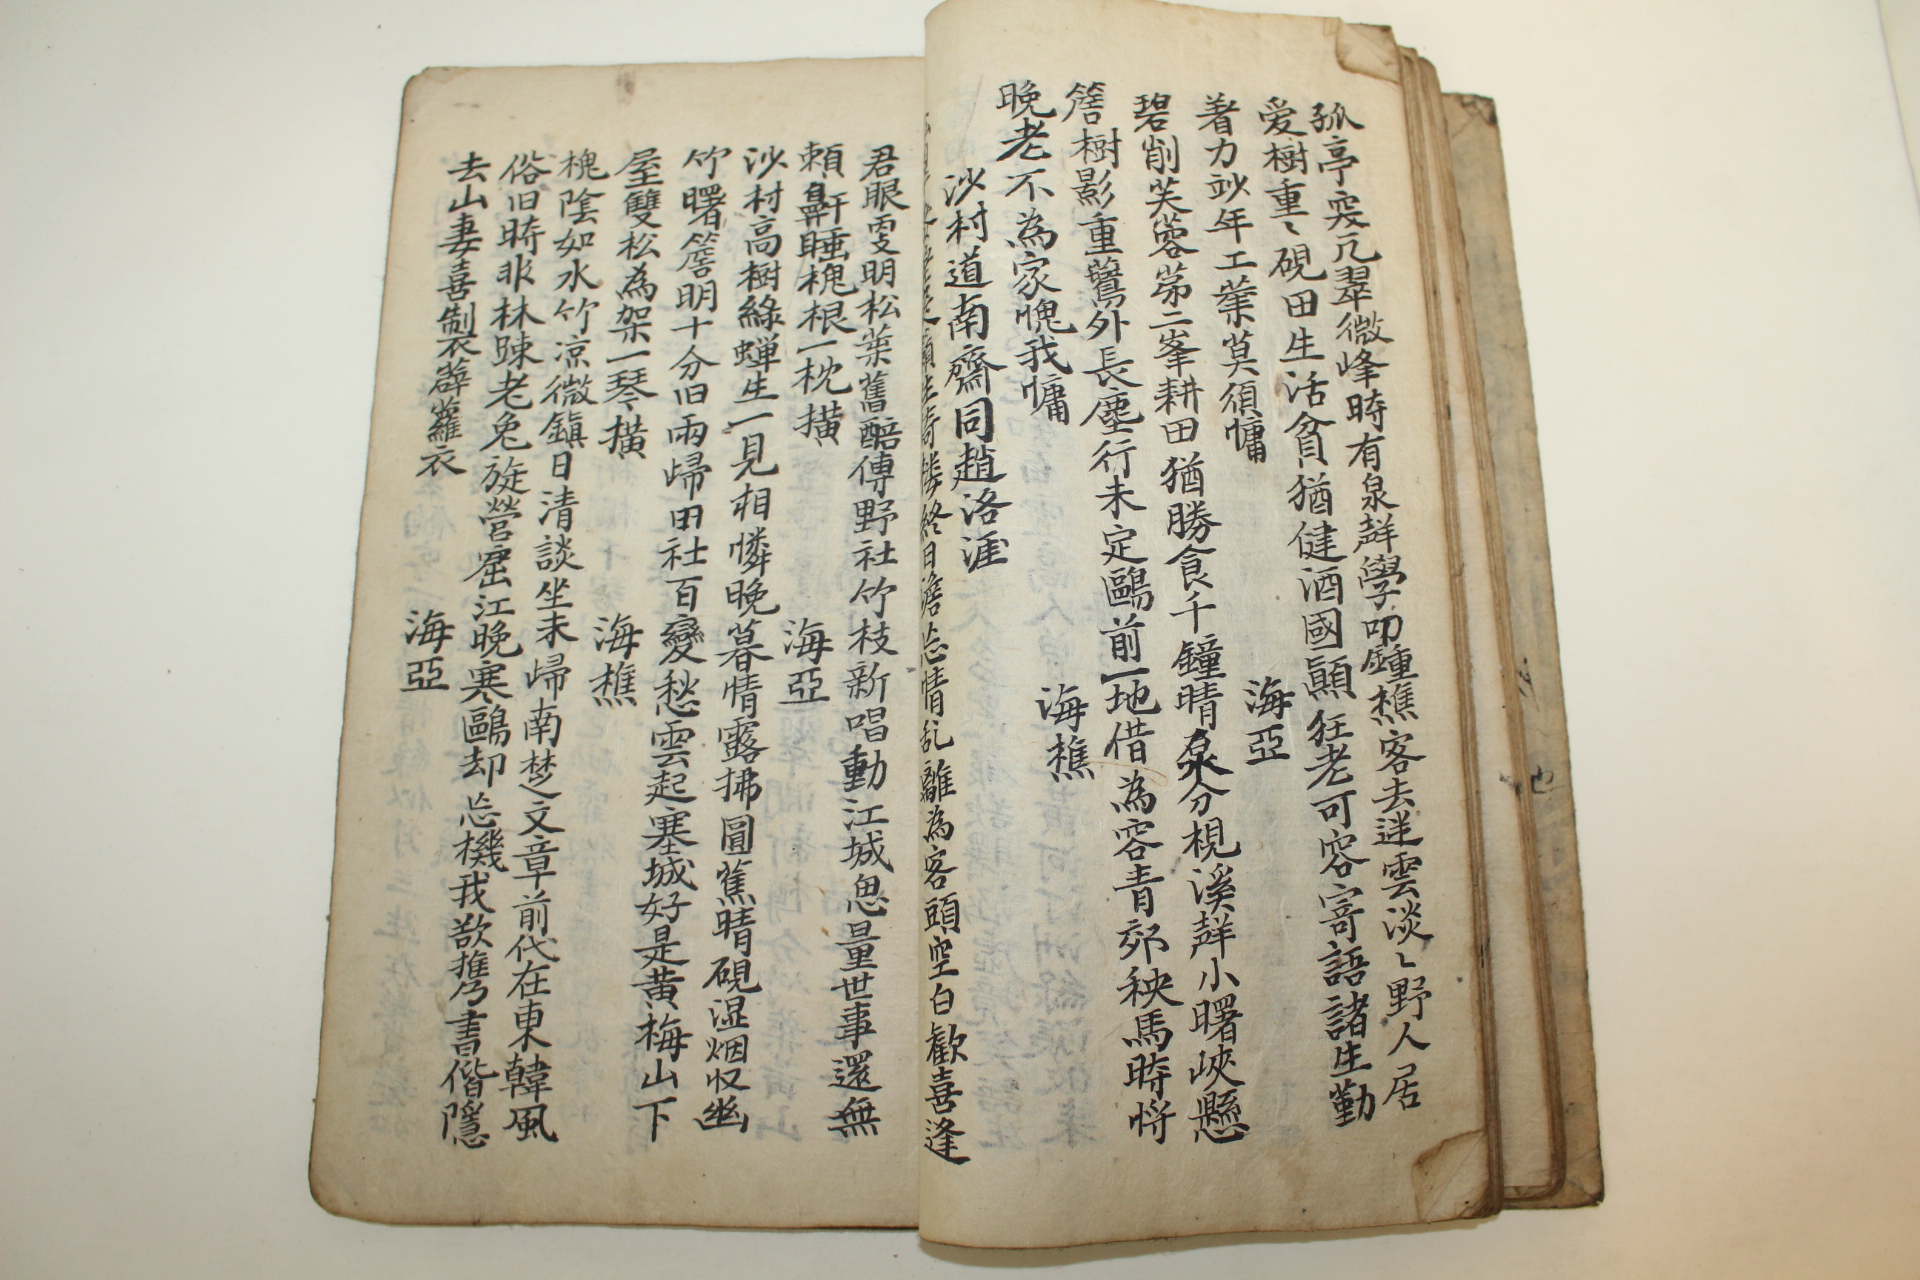 孤亭突兀翠微峰時有泉聲學叩鍾樵客去迷雲淡〻野人居
愛樹重〻硯田生活貧猶健酒國顚狂老可容寄語諸生勤
着力玅年工業莫須慵
海亞
碧削芙蓉第二峯耕田猶勝食千鐘晴泉分枧溪聲小曙峽懸
簷樹影重鷺外長塵行未定鷗前一地借為容青郊秧馬時將
晩老不為家愧我慵
海樵
沙村道南齋同趙洛涯
終日澹忘情乱離為客頭空白歡喜逢
君眼更明松葉舊醅傳野社竹枝新唱動江城思量世事還無
頼鼻鼾睡槐根一枕橫
海亞
沙村高樹綠蟬生一見相憐晩暮情露拂圓蕉晴硯湿烟収幽
竹曙簷明十分旧雨歸田社百變愁雲起塞城好是黃梅山下
屋雙松為架一琴橫
海樵
槐陰如水竹凉微鎭日淸談坐未歸南楚文章前代在東韓風
俗旧時非林踈老兔旋營窟江晩寒鷗却忘機我欲携書偕隱
去山妻喜制薜蘿衣
海亞